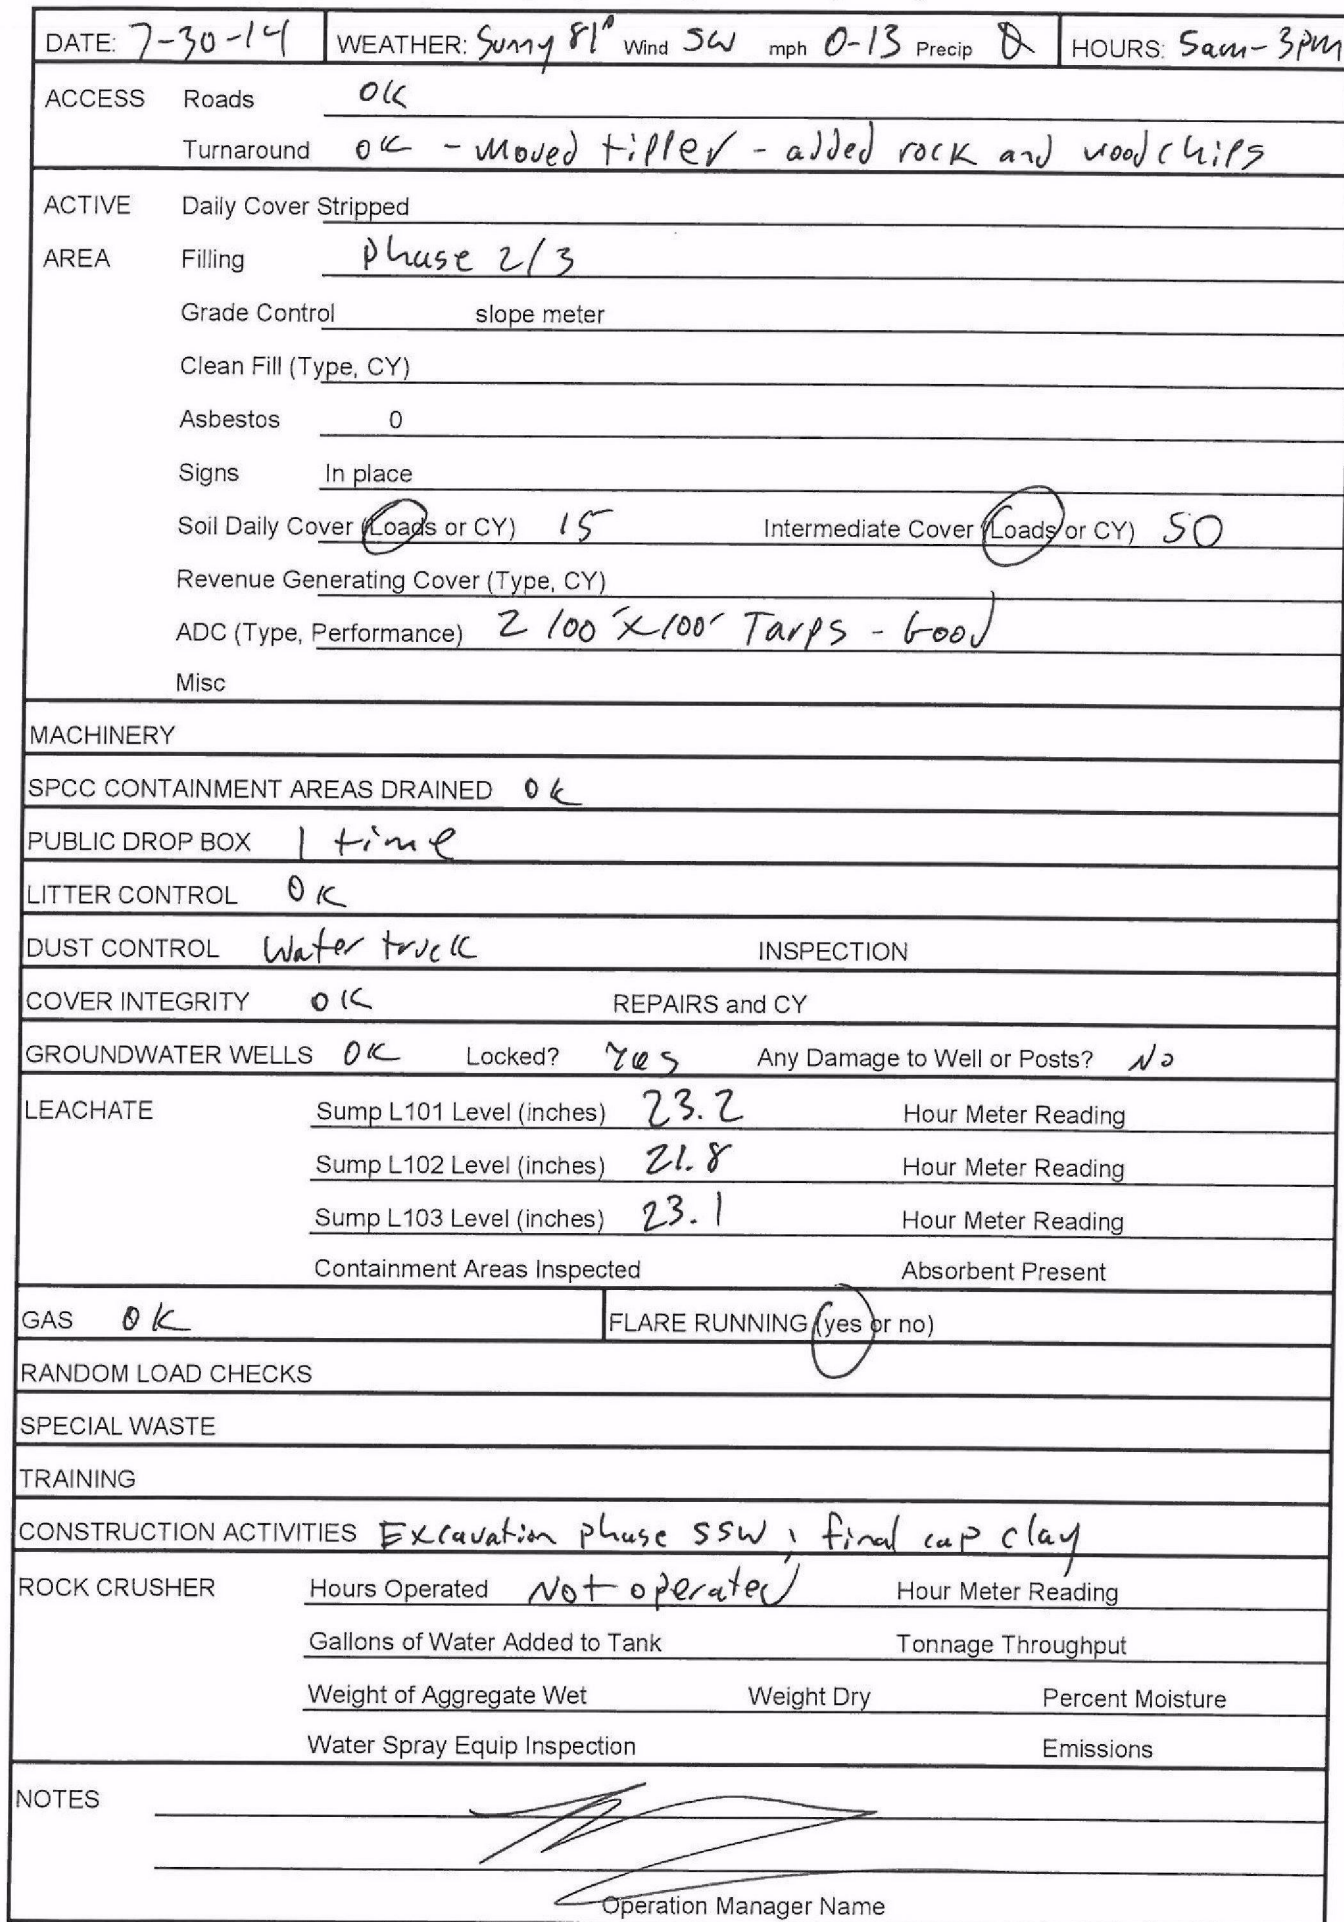 DATE: 7-30-14 WEATHER: Sunny 81° Wind SW mph 0-13 Precip 0 HOURS: 5am-3pm
ACCESS Roads OK
Turnaround OK - Moved tipper - added rock and woodchips
ACTIVE Daily Cover Stripped
AREA Filling Phase 2/3
Grade Control slope meter
Clean Fill (Type, CY)
Asbestos 0
Signs In place
Soil Daily Cover (Loads or CY) 15 Intermediate Cover (Loads or CY) 50
Revenue Generating Cover (Type, CY)
ADC (Type, Performance) 2 100'x100' Tarps - Good
Misc
MACHINERY
SPCC CONTAINMENT AREAS DRAINED OK
PUBLIC DROP BOX 1 time
LITTER CONTROL OK
DUST CONTROL Water truck INSPECTION
COVER INTEGRITY OK REPAIRS and CY
GROUNDWATER WELLS OK Locked? Yes Any Damage to Well or Posts? No
LEACHATE Sump L101 Level (inches) 23.2 Hour Meter Reading
Sump L102 Level (inches) 21.8 Hour Meter Reading
Sump L103 Level (inches) 23.1 Hour Meter Reading
Containment Areas Inspected Absorbent Present
GAS OK FLARE RUNNING (yes or no)
RANDOM LOAD CHECKS
SPECIAL WASTE
TRAINING
CONSTRUCTION ACTIVITIES Excavation phase SSW; final cap clay
ROCK CRUSHER Hours Operated Not operated Hour Meter Reading
Gallons of Water Added to Tank Tonnage Throughput
Weight of Aggregate Wet Weight Dry Percent Moisture
Water Spray Equip Inspection Emissions
NOTES
Operation Manager Name